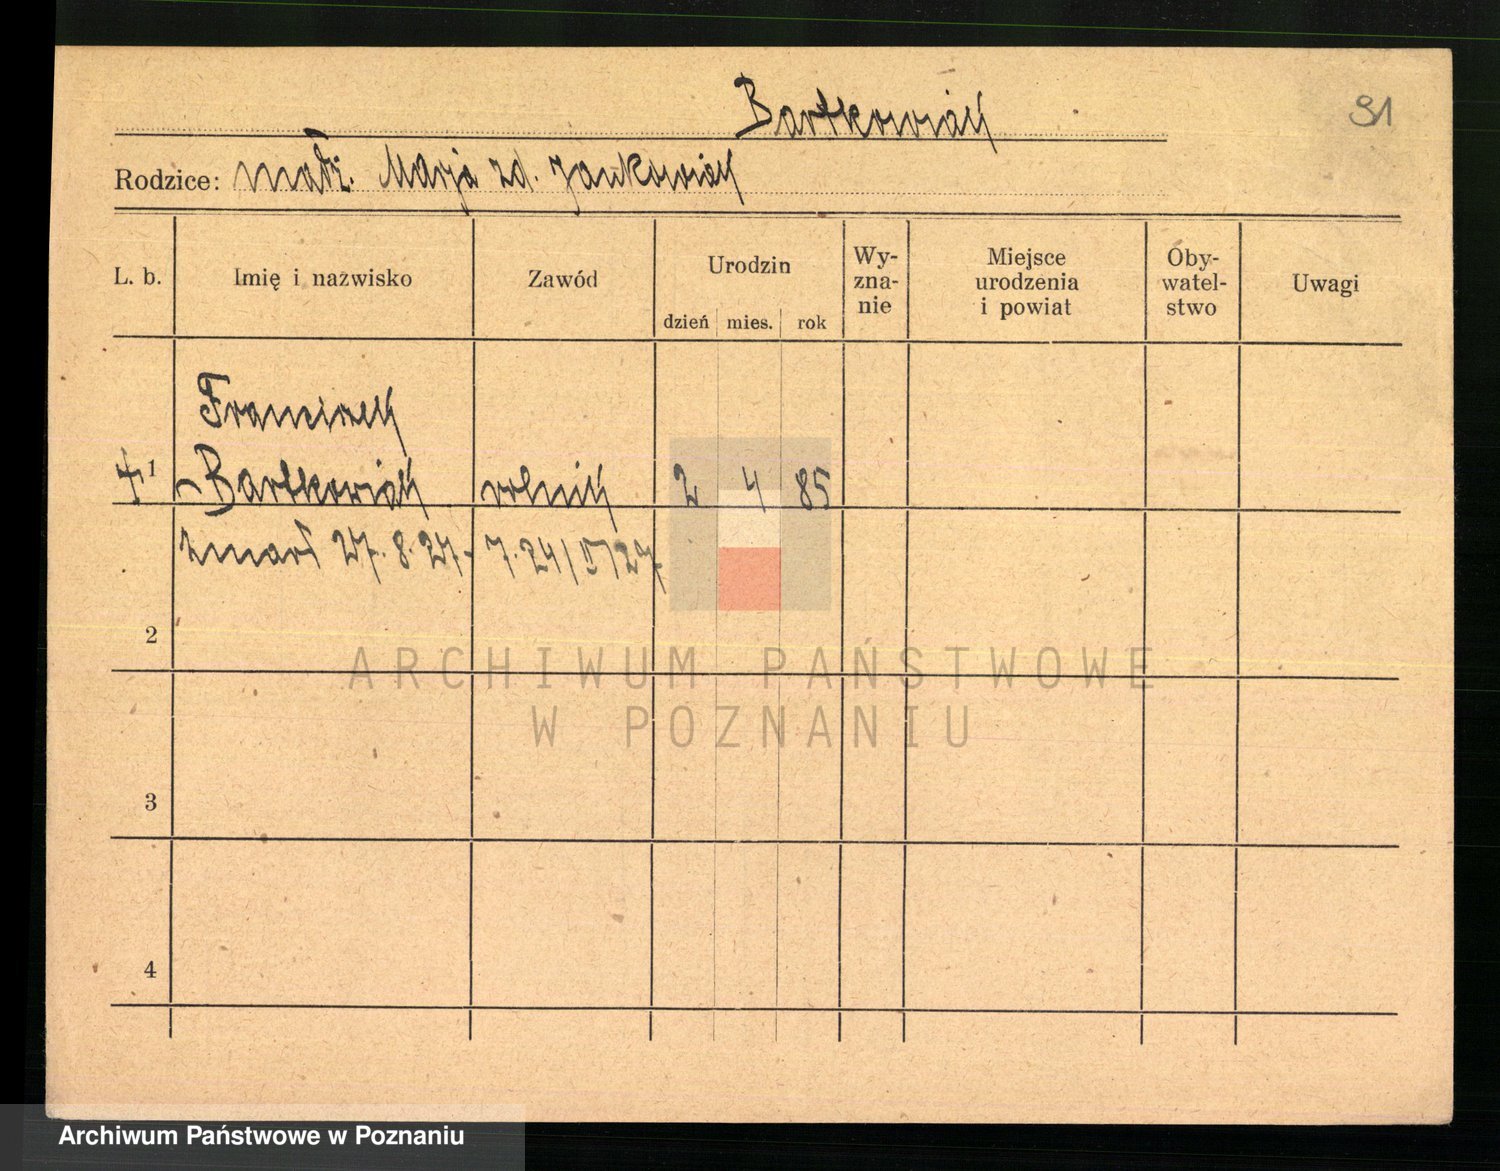 Bartkowiak
91
Rodzice: małż. Marja zd. Jankowiak
L. b.
Imię i nazwisko
Zawód
Urodzin
dzień mies. rok
Wy-
zna-
nie
Miejsce
urodzenia
i powiat
Oby-
watel-
stwo
Uwagi
Franciszek
1 Bartkowiak rolnik 2 4 85
zmarł 27. 8. 27.
2
3
4
ARCHIWUM PAŃSTWOWE
W POZNANIU
Archiwum Państwowe w Poznaniu